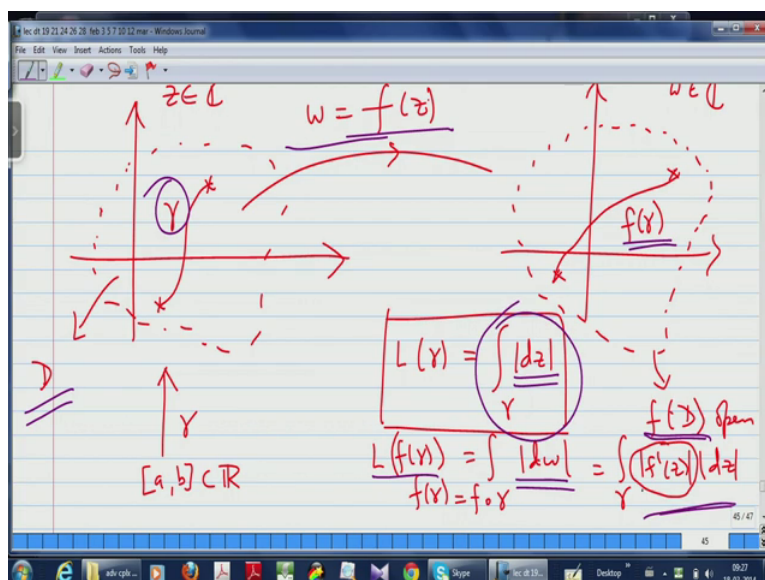 lec dt 19 21 24 26 28 feb 3 5 7 10 12 mar - Windows Journal
File Edit View Insert Actions Tools Help
z∈ℂ
w = f(z)
w∈ℂ
γ
f(γ)
D
L(γ) = ∫_γ |dz|
f(D) open
γ
L(f(γ)) = ∫_{f(γ)=f∘γ} |dw| = ∫_γ |f'(z)| |dz|
[a,b] ⊂ ℝ
45/47
45
adv cplx...
Skype
lec dt 19...
Desktop
09:27